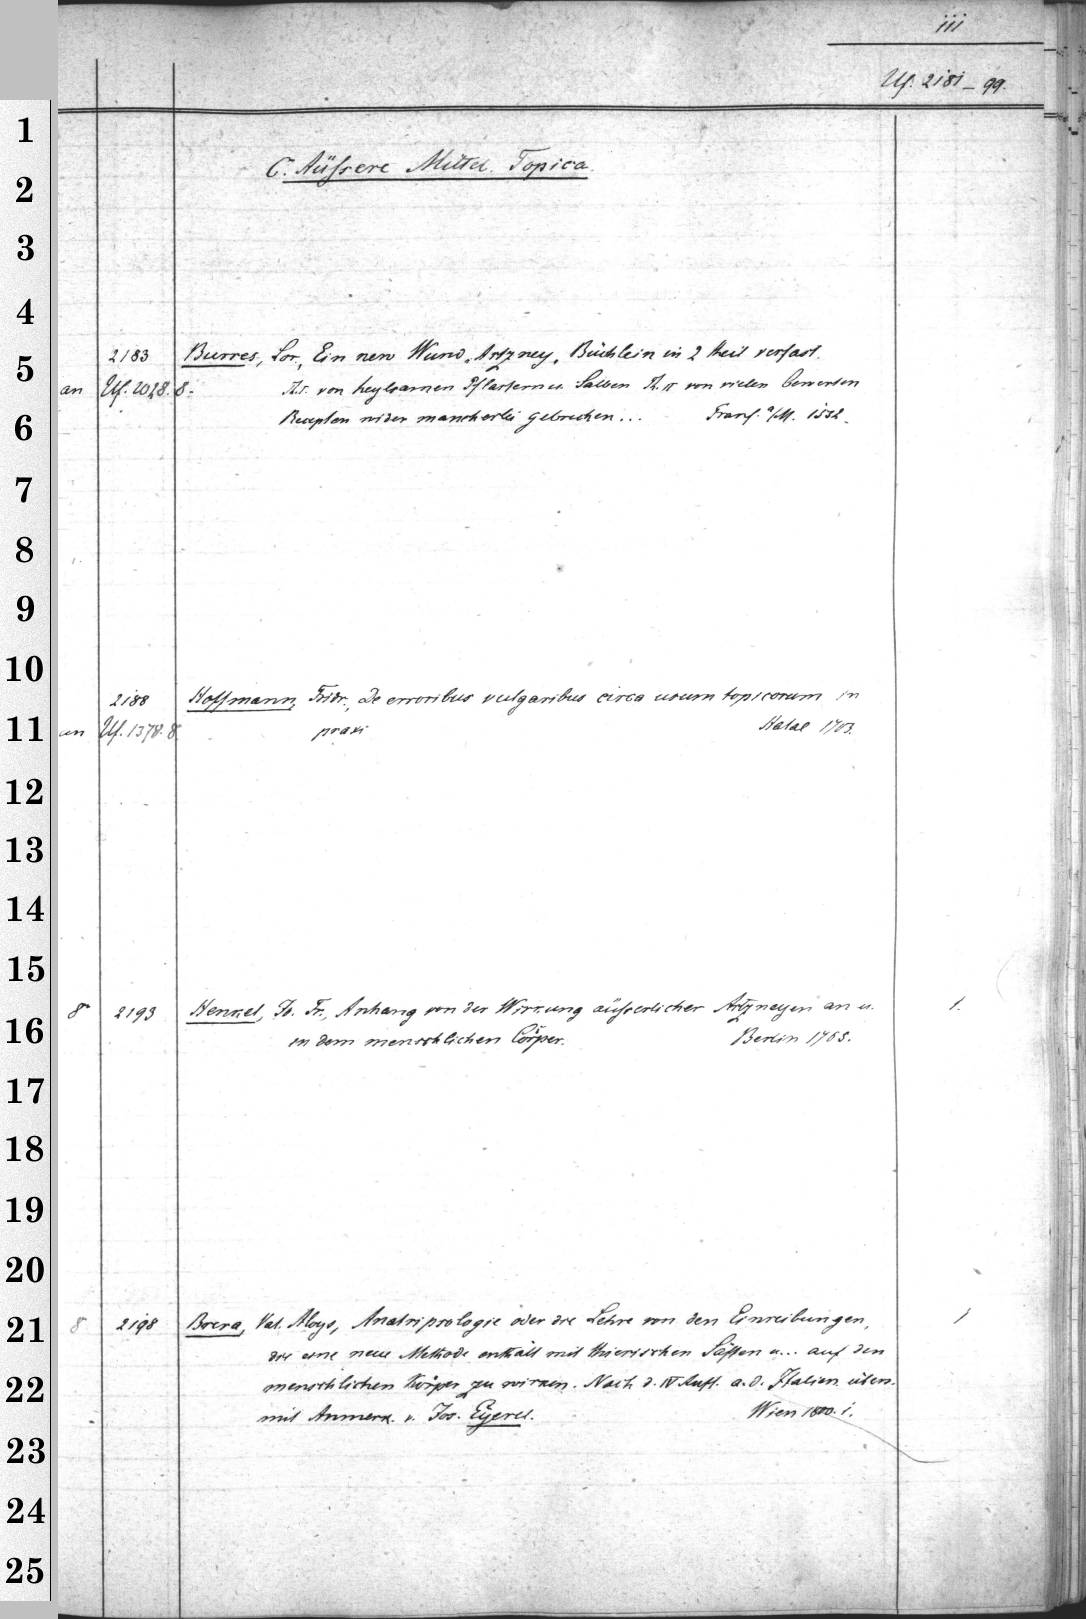 iii
Uf. 2181-99.
C. Äüssere Mittel. Topica.
2183 Burres, Lor., Ein new Wund-Artzney-Büchlein in 2 theil verfast.
an Uf. 2028. 8. Th. I. von heylsamen Pflastern u. Salben Th. II von vielen bewerten
Recepten wider mancherlei gebrechen... Franf. a/M. 1552.
2188 Hoffmann, Fridr., De erroribus vulgaribus circa usum topicorum in
an Uf. 1378. 8. praxi Halae 1703.
8 2193 Henkel, Jo. Fr., Anhang von der Wirkung äüsserlicher Artzneyen an u.
in dem menschlichen Cörper. Berlin 1765. 1.
8 2198 Brera, Val. Aloys, Anatripsologie oder die Lehre von den Einreibungen, 1
die eine neue Methode enthält mit thierischen Säften u... auf den
menschlichen Körper zu wirken. Nach d. IV Aufl. a. d. Italien. übers.
mit Anmerk. v. Jos. Eyerel. Wien 1800. i.
1
2
3
4
5
6
7
8
9
10
11
12
13
14
15
16
17
18
19
20
21
22
23
24
25